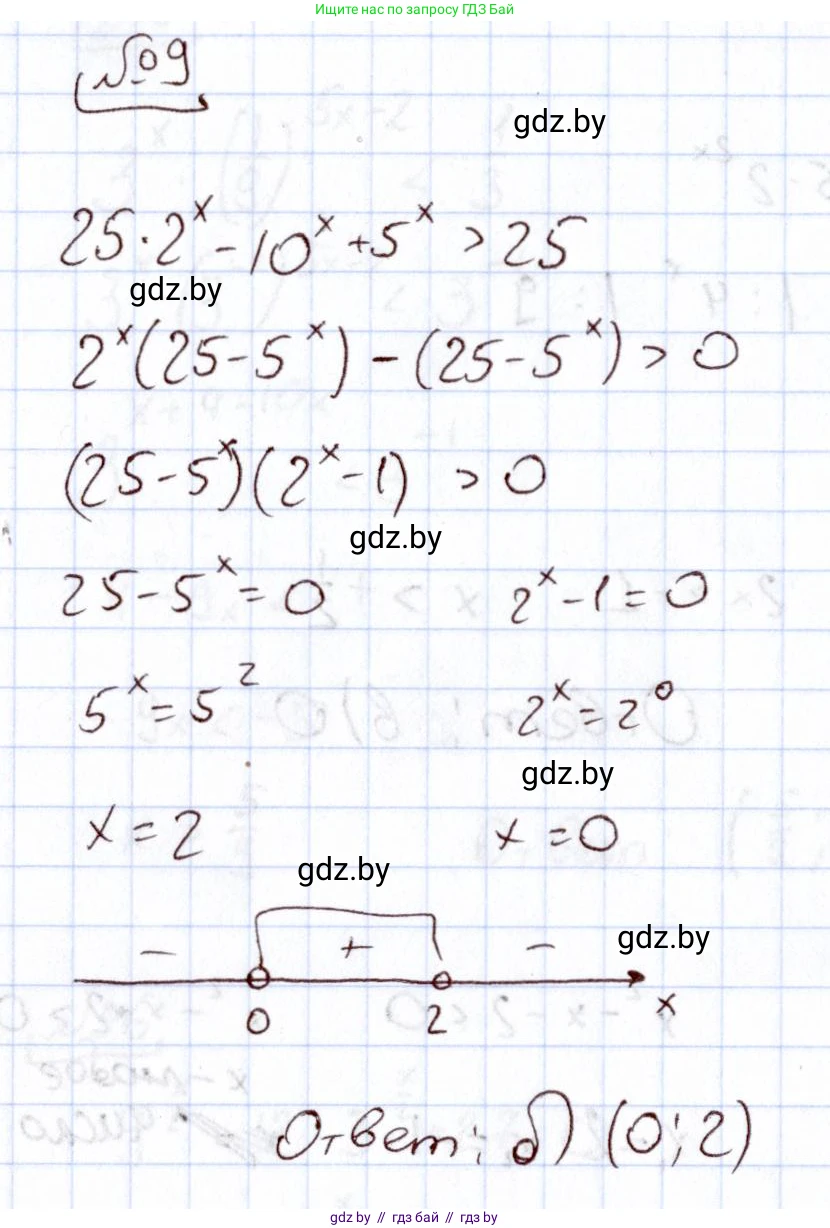 Ищите нас по запросу ГДЗ Бай
№9
gdz.by
25·2^x - 10^x + 5^x > 25
gdz.by
2^x(25-5^x) - (25-5^x) > 0
(25-5^x)(2^x-1) > 0
gdz.by
25-5^x=0 2^x-1=0
5^x=5^2 2^x=2^0
gdz.by
x=2 x=0
gdz.by
gdz.by
- + -
0 2 x
Ответ: б) (0; 2)
gdz.by // гдз бай // гдз by